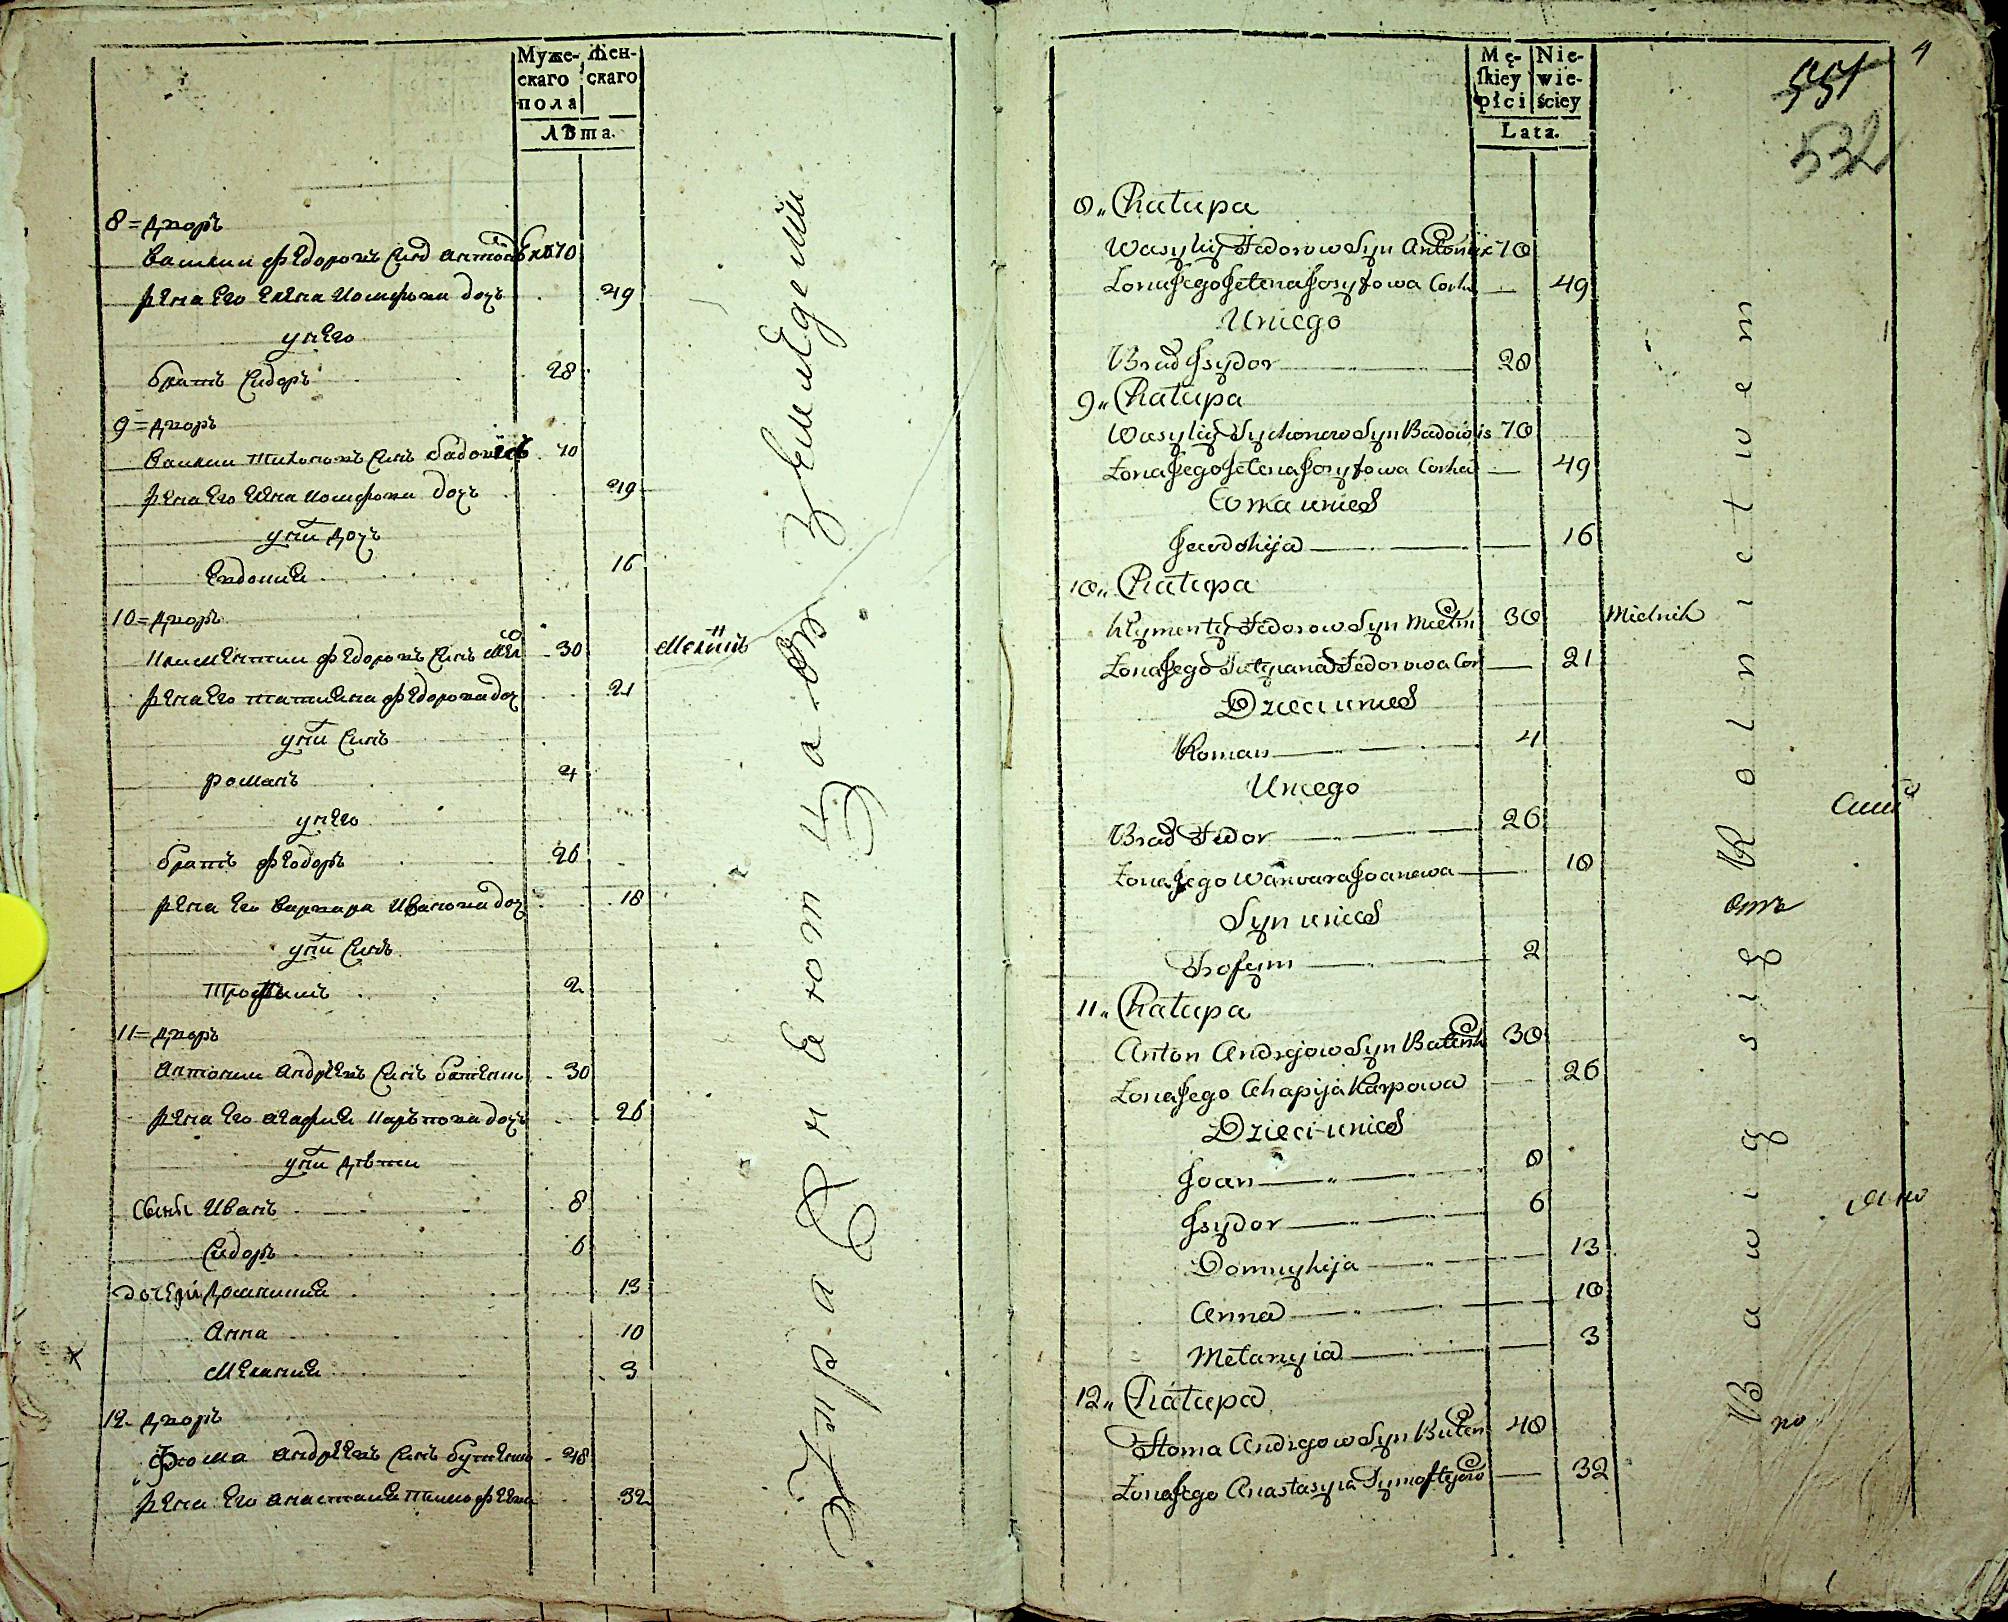 Муже-
скаго
пола
Жен-
скаго
Лѣта.
8 = дворъ
Василий Федоровъ Синъ 70
жена Его Елена Иосифова доч 49
у него
братъ Сидоръ 28
9 = дворъ
Василий Тихоновъ Синъ 70
жена Его Елена Иосифова доч 49
у них дочъ
Евдокия 16
10 = дворъ
Климентий Федоровъ Синъ Мел 30
жена Его Татияна Федорова доч 21
у них Синъ
Романъ 4
у него
братъ Феодоръ 26
жена Его Варвара Иванова доч 18
у них Синъ
Трофимъ 2
11 = дворъ
Антоний Андреевъ Синъ 30
жена Его Агафия Карпова дочъ 26
у них дѣти
Сыны Иванъ 8
Сидоръ 6
дочери Домникия 13
Анна 10
Мелания 3
12 - дворъ
Фома Андреевъ Синъ 48
жена Его Анастасия Тимофеева 32
Упражняютца въ земледелии
Mę-
skiey
płci
Nie-
wie-
ściey
Lata.
4
551
532
8„ Chałupa
Wasylij Fedorow Syn 70
Żona Jego Jelena Jozyfowa Corka — 49
U niego
Brad Jsydor 28
9„ Chałupa
Wasylij Tychonow Syn 70
Żona Jego Jelena Jozyfowa Corka — 49
Corka u nich
Jewdokija 16
10„ Chałupa
Kłymentij Fedorow Syn Mieln 30 Mielnik
Żona Jego Tatyana Fedorowa Cor — 21
Dzieci u nich
Roman 4
U niego
Brad Fedor 26
Żona Jego Warwara Joanowa — 18
Syn u nich
Trofym 2
11„ Chałupa
Anton Andrejow Syn 30
Żona Jego Ahapija Karpowa — 26
Dzieci u nich
Joan — „ — 8
Jsydor 6
Domnykija 13
Anna 10
Mełanyia 3
12„ Chałupa
Ftoma Andrejow Syn 48
Żona Jego Anastasyia Tymoftejowa — 32
Bawią się Rolnictwem
отъ
по